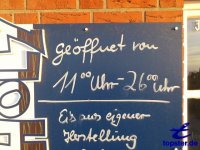 geöffnet von
11⁰⁰Uhr-26⁰⁰Uhr
Eis aus eigener
Herstellung
topster.de